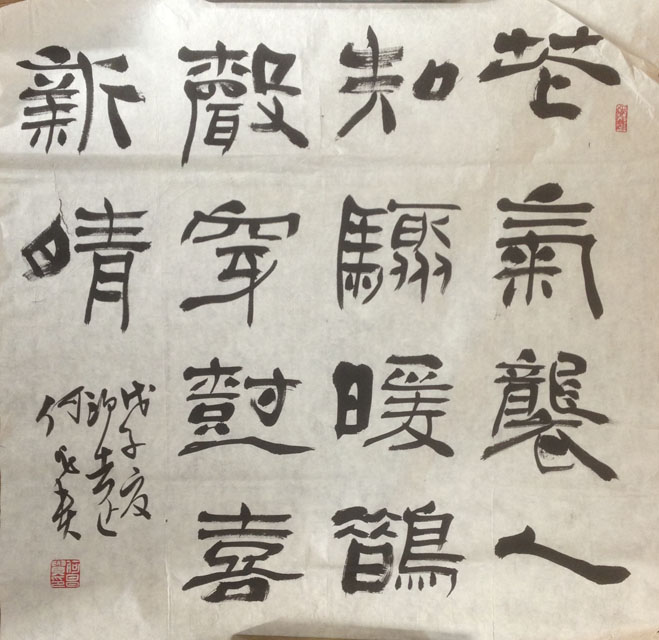 花氣襲人
知驟暖鵲
聲穿樹喜
新晴
戊子夏
何